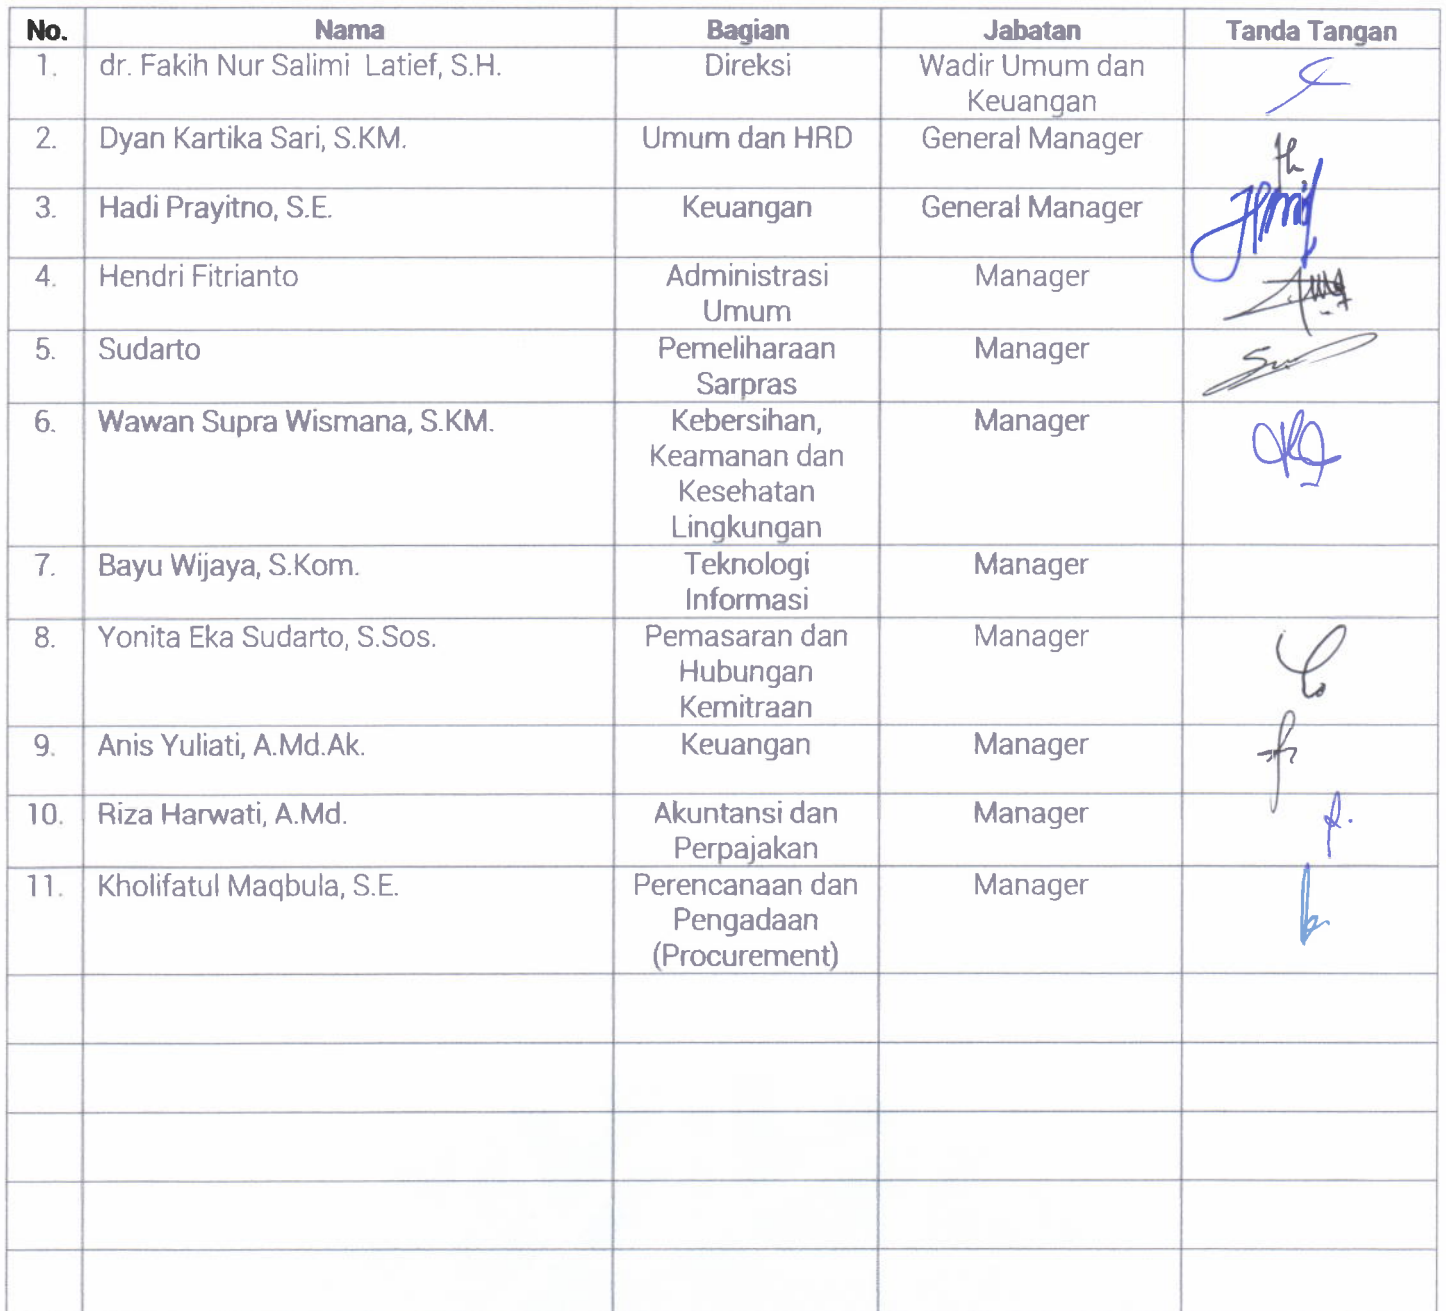 No. Nama Bagian Jabatan Tanda Tangan
1. dr. Fakih Nur Salimi Latief, S.H. Direksi Wadir Umum dan
Keuangan
2. Dyan Kartika Sari, S.KM. Umum dan HRD General Manager
3. Hadi Prayitno, S.E. Keuangan General Manager
4. Hendri Fitrianto Administrasi Manager
Umum
5. Sudarto Pemeliharaan Manager
Sarpras
6. Wawan Supra Wismana, S.KM. Kebersihan, Manager
Keamanan dan
Kesehatan
Lingkungan
7. Bayu Wijaya, S.Kom. Teknologi Manager
Informasi
8. Yonita Eka Sudarto, S.Sos. Pemasaran dan Manager
Hubungan
Kemitraan
9. Anis Yuliati, A.Md.Ak. Keuangan Manager
10. Riza Harwati, A.Md. Akuntansi dan Manager
Perpajakan
11. Kholifatul Maqbula, S.E. Perencanaan dan Manager
Pengadaan
(Procurement)